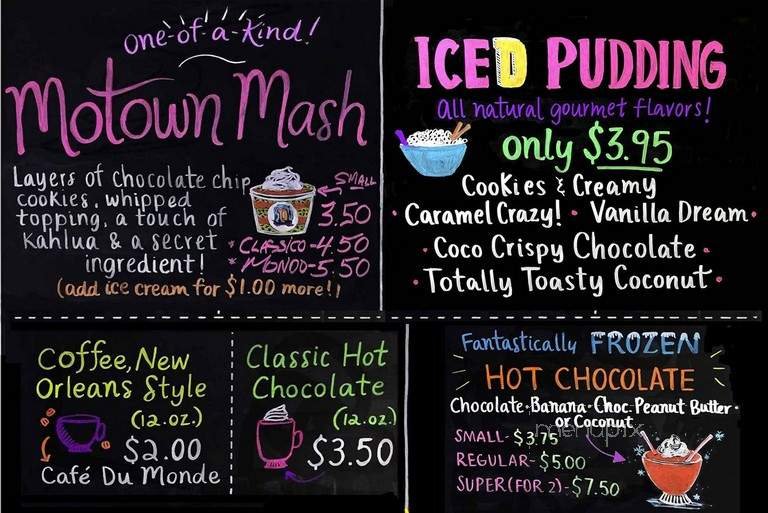 One-of-a-Kind!
Motown Mash
Layers of chocolate chip
cookies, whipped
topping, a touch of
Kahlua & a secret
ingredient!
SMALL
3.50
* CLASSICO-4.50
* MONDO-5.50
(add ice cream for $1.00 more!)
ICED PUDDING
all natural gourmet flavors!
only $3.95
Cookies & Creamy
• Caramel Crazy! • Vanilla Dream •
• Coco Crispy Chocolate •
• Totally Toasty Coconut •
Coffee, New
Orleans Style
(12.oz.)
$2.00
Café Du Monde
Classic Hot
Chocolate
(12.oz.)
$3.50
Fantastically FROZEN
HOT CHOCOLATE
Chocolate • Banana • Choc. Peanut Butter •
or Coconut
SMALL- $3.75
REGULAR- $5.00
SUPER (FOR 2)- $7.50
menupix